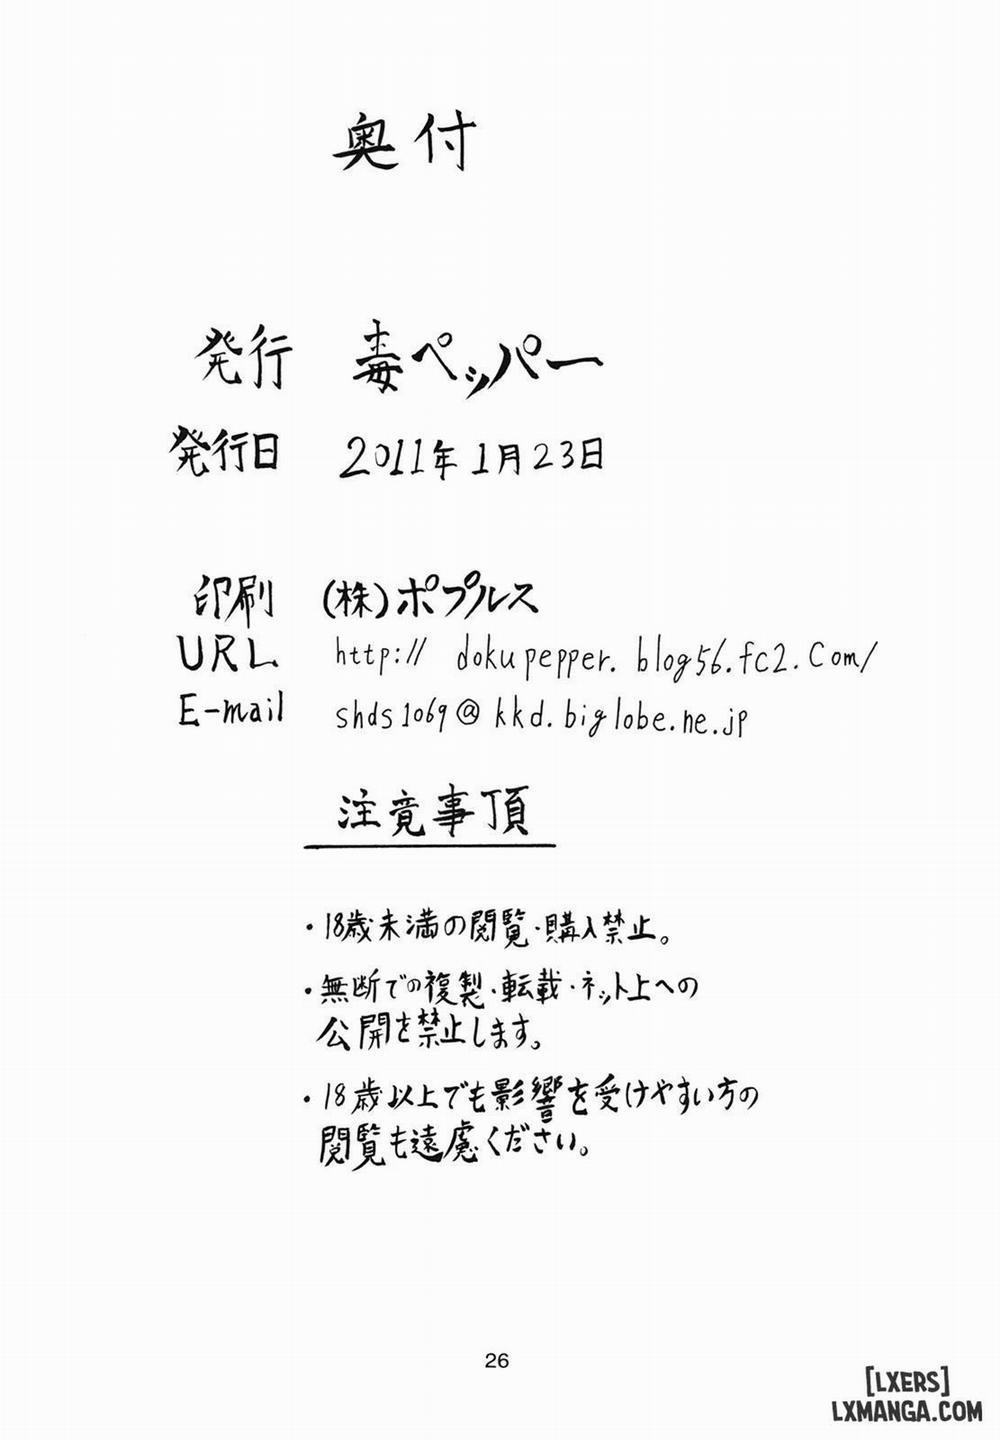 奥付
発行 毒ペッパー
発行日 2011年1月23日
印刷 (株)ポプルス
URL http://dokupepper.blog56.fc2.com/
E-mail shds1069@kkd.biglobe.ne.jp
注意事項
・18歳未満の閲覧・購入禁止。
・無断での複製・転載・ネット上への
公開を禁止します。
・18歳以上でも影響を受けやすい方の
閲覧も遠慮ください。
26
[LXERS]
LXMANGA.COM